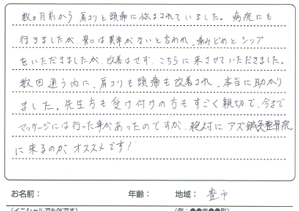 数ヶ月前から肩こりと頭痛に悩まされていました。病院にも
行きましたが、骨には異常がないと言われ、痛みどめとシップ
をいただきましたが、改善せず、こちらに来させていただきました。
数回通う内に、肩こりも頭痛も改善され、本当に助かり
ました。先生方も受け付けの方もすごく親切で、今まで
マッサージには行った事があったのですが、絶対にアズ鍼灸整骨院
に来るのがオススメです!
お名前: 年齢: 地域: